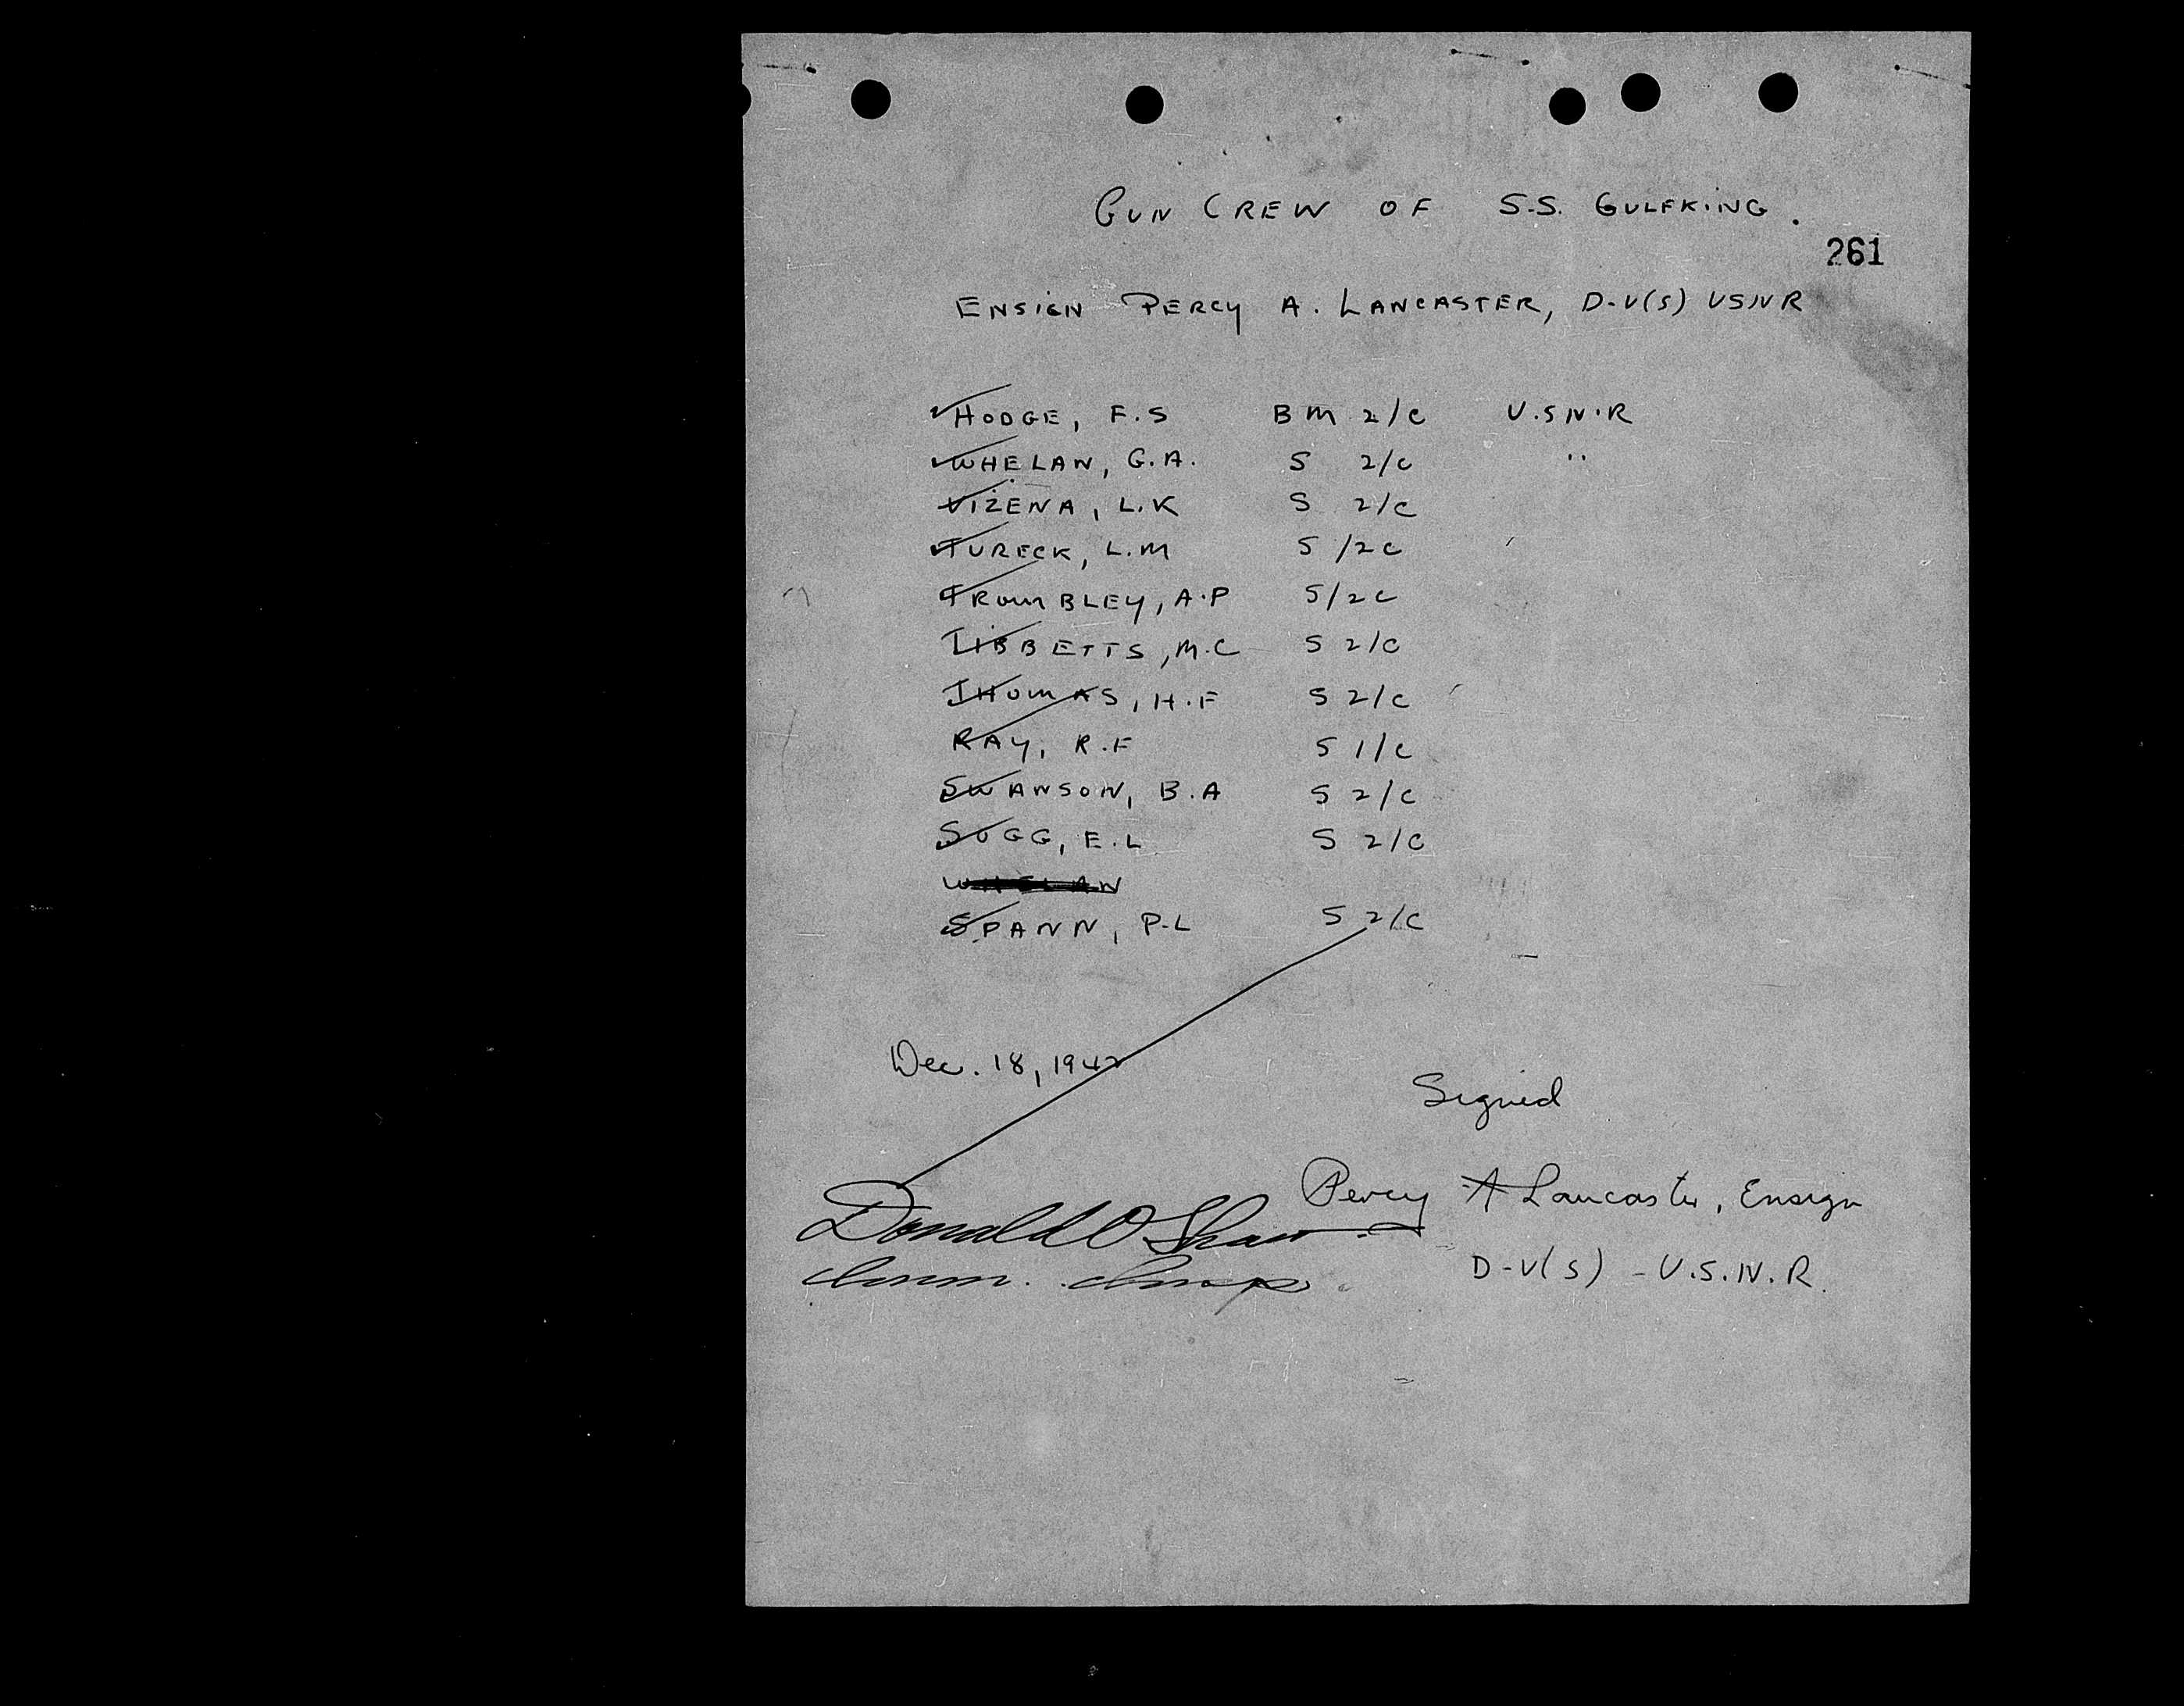 GUN CREW OF S.S. GULFKING.
261
ENSIGN PERCY A. LANCASTER, D-V(S) USNR
HODGE, F.S BM 2/C U.S.N.R
WHELAN, G.A. S 2/C "
VIZENA, L.K S 2/C
TURECK, L.M S /2C
TROMBLEY, A.P S/2C
TIBBETTS, M.C S 2/C
THOMAS, H.F S 2/C
RAY, R.F S 1/C
SWANSON, B.A S 2/C
SOGG, E.L S 2/C
WHELAN
SPANN, P.L S 2/C
Dec. 18, 1942
Signed
Percy A Lancaster, Ensign
Donald O Shaw
D-V(S) - U.S.N.R.